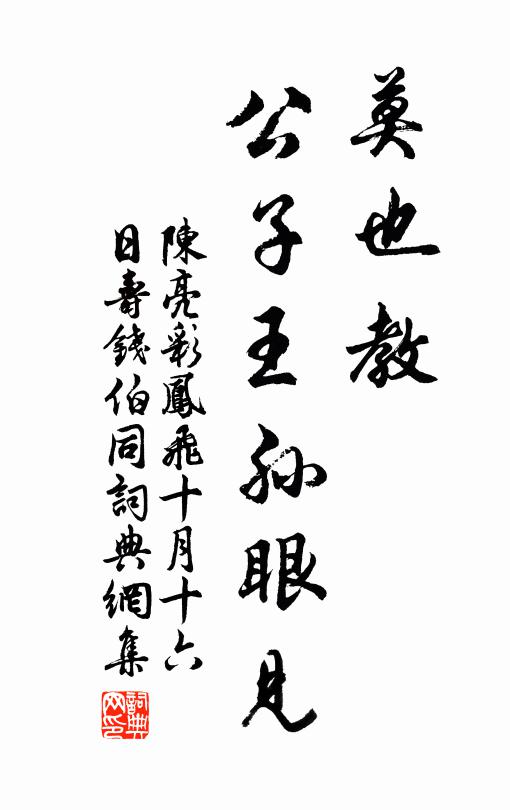 莫也教
公子王孫眼見
陳亮彩鳳飛十月十六
日壽錢伯同詞典網集
詞典
网印